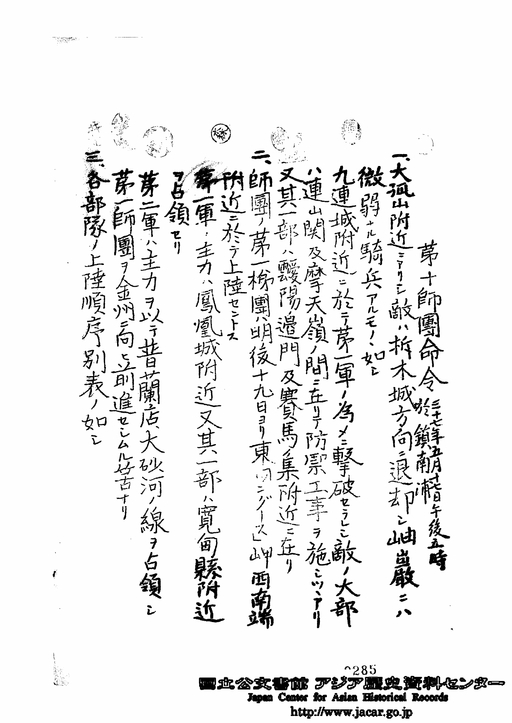 第十師團命令 三十七年五月十七日午後五時 於鎮南浦
一、大孤山附近ニアリシ敵ハ析木城方向ニ退却シ岫巖ニハ
微弱ナル騎兵アルモノヽ如シ
九連城附近ニ於テ第一軍ノ為メニ擊破セラレシ敵ノ大部
ハ連山関及摩天嶺ノ間ニ在リテ防禦工事ヲ施シツヽアリ
又其一部ハ靉陽邊門及賽馬集附近ニ在リ
二、師團ノ第一梯團ハ明後十九日ヨリ東「コングース」岬西南端
附近ニ於テ上陸セントス
第一軍ノ主力ハ鳳凰城附近又其一部ハ寬甸縣附近
ヲ占領セリ
第二軍ハ主力ヲ以テ普蘭店大砂河ノ線ヲ占領シ
第一師團ヲ金州ニ向ヒ前進セシムル筈ナリ
三、各部隊ノ上陸順序別表ノ如シ
0285
國立公文書館 アジア歴史資料センター
Japan Center for Asian Historical Records
http://www.jacar.go.jp